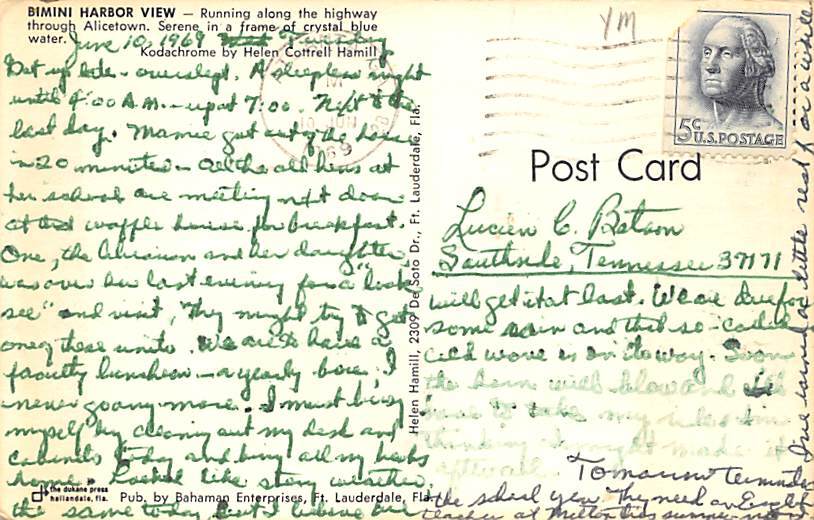 BIMINI HARBOR VIEW — Running along the highway
through Alicetown. Serene in a frame of crystal blue
water.
Kodachrome by Helen Cottrell Hamill
June 10, 1969 Tuesday
Get up late - overslept. A sleepless night
until 4:00 A.M. - up at 7:00. Next to the
last day. Mamie got out of the house
in 20 minutes - All the old hens at
her school are meeting next door
at the waffle house for breakfast.
One, the librarian and her daughter,
was over here last evening for a "look
see" and visit, They might try to get
one of these units. We are to have a
faculty luncheon - a yearly bore, I
never go any more. I must busy
myself by cleaning out my desk and
cabinets today and bring all my books
home. Looked like stormy weather.
the same today but I believe we
will get it at last. We are due for
some rain and that so-called
cold wave is on its way. Soon
the horn will blow and
have to take my
thinking I might make it
after all. Tomorrow terminates
the school year. They need an English
teacher at
I've earned a little rest for a while
Helen Hamill, 2309 De Soto Dr., Ft. Lauderdale, Fla.
Post Card
5¢
U.S. POSTAGE
YM
M
10 JUN
1969
Lucien C. Batson
Southside, Tennessee 37171
the dukane press
hallandale, fla.
Pub. by Bahaman Enterprises, Ft. Lauderdale, Fla.